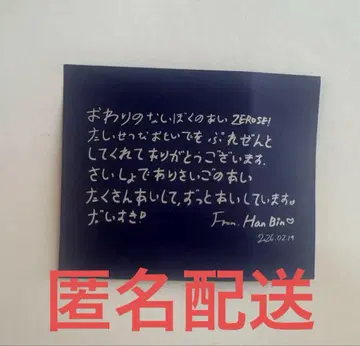 おわりのないぼくのあい ZEROSE!
たいせつなおもいでを ぷれぜんと
してくれてありがとうございます.
さいしょでありさいごのあい
たくさんあいして,ずっとあいしています。
だいすき!
From. Han Bin♡
226.02.19
匿名配送